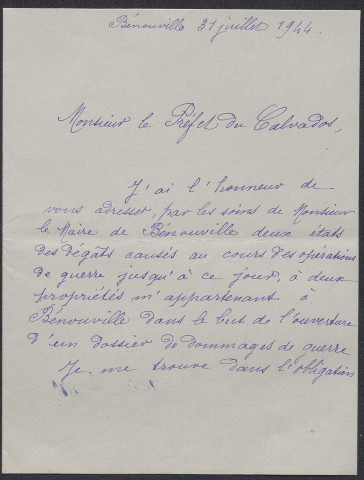 Bénouville 31 juillet 1944.
Monsieur le Préfet du Calvados,
J'ai l'honneur de
vous adresser, par les soins de Monsieur
le Maire de Bénouville deux états
des dégâts causés au cours des opérations
de guerre jusqu'à ce jour, à deux
propriétés m'appartenant à
Bénouville dans le but de l'ouverture
d'un dossier de dommages de guerre
Je me trouve dans l'obligation